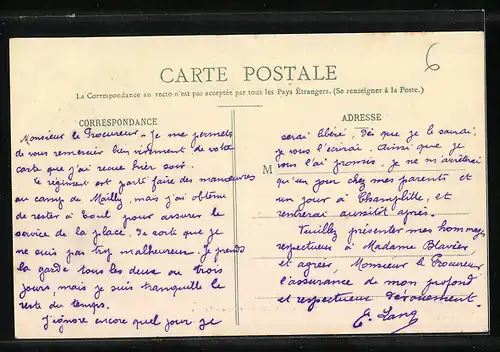 6
CARTE POSTALE
La Correspondance au recto n'est pas acceptée par tous les Pays Étrangers. (Se renseigner à la Poste.)
CORRESPONDANCE
Monsieur le Procureur. Je me permets
de vous remercier bien vivement de votre
carte que j'ai reçue hier soir.
Le régiment est parti faire des manœuvres
au camp de Mailly, mais j'ai obtenu
de rester à Toul pour assurer le
service de la place, de sorte que je
ne suis pas trop malheureux. Je prends
la garde tous les deux ou trois
jours, mais je suis tranquille le
reste du temps.
J'ignore encore quel jour je
ADRESSE
M
serai libéré. Dès que je le saurai,
je vous l'écrirai. Ainsi que je
vous l'ai promis, je ne m'arrêterai
qu'un jour chez mes parents et
un jour à Champlitte, et
rentrerai aussitôt après.
Veuillez présenter mes hommages
respectueux à Madame Blavier,
et agréer, Monsieur le Procureur
l'assurance de mon profond
et respectueux dévouement.
E. Lang